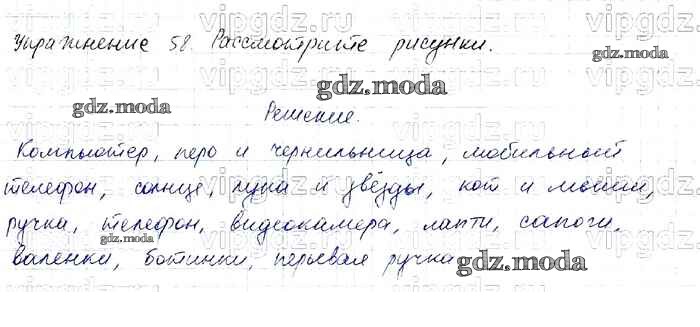 Упражнение 58. Рассмотрите рисунки.
Решение.
Компьютер, перо и чернильница, мобильный
телефон, солнце, луна и звёзды, кот и мыши,
ручка, телефон, видеокамера, лапти, сапоги,
валенки, ботинки, перьевая ручка
gdz.moda
gdz.moda
gdz.moda
gdz.moda
vipgdz.ru